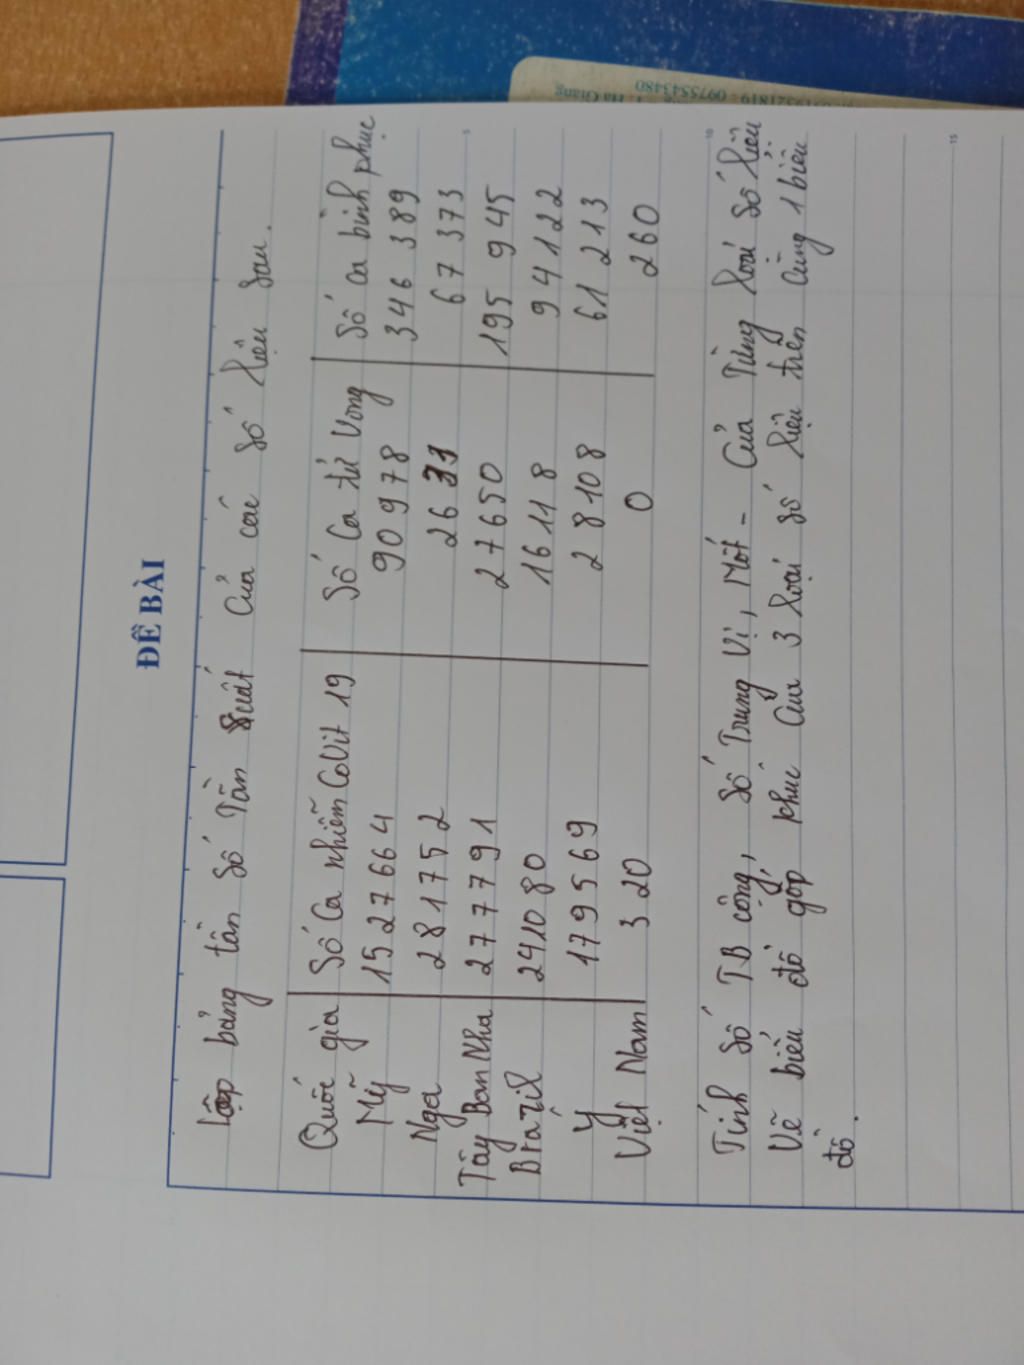 0975543480
ĐỀ BÀI
lập bảng tần số Tần suất Của các số liệu sau.
Quốc gia Số Ca nhiễm CoVit 19 Số Ca tử Vong Số ca bình phục
Mỹ 1527664 90978 346 389
Nga 281752 2631 67 373
Tây Ban Nha 277791 27650 195 945
Brazil 241080 16118 94122
Ý 179569 28108 61 213
Việt Nam 320 0 260
Tính số TB cộng, số Trung Vị, Mốt - Của Từng loại số liệu
Vẽ biểu đồ gấp khúc Của 3 loại số liệu trên cùng 1 biểu
đồ.
5
10
15